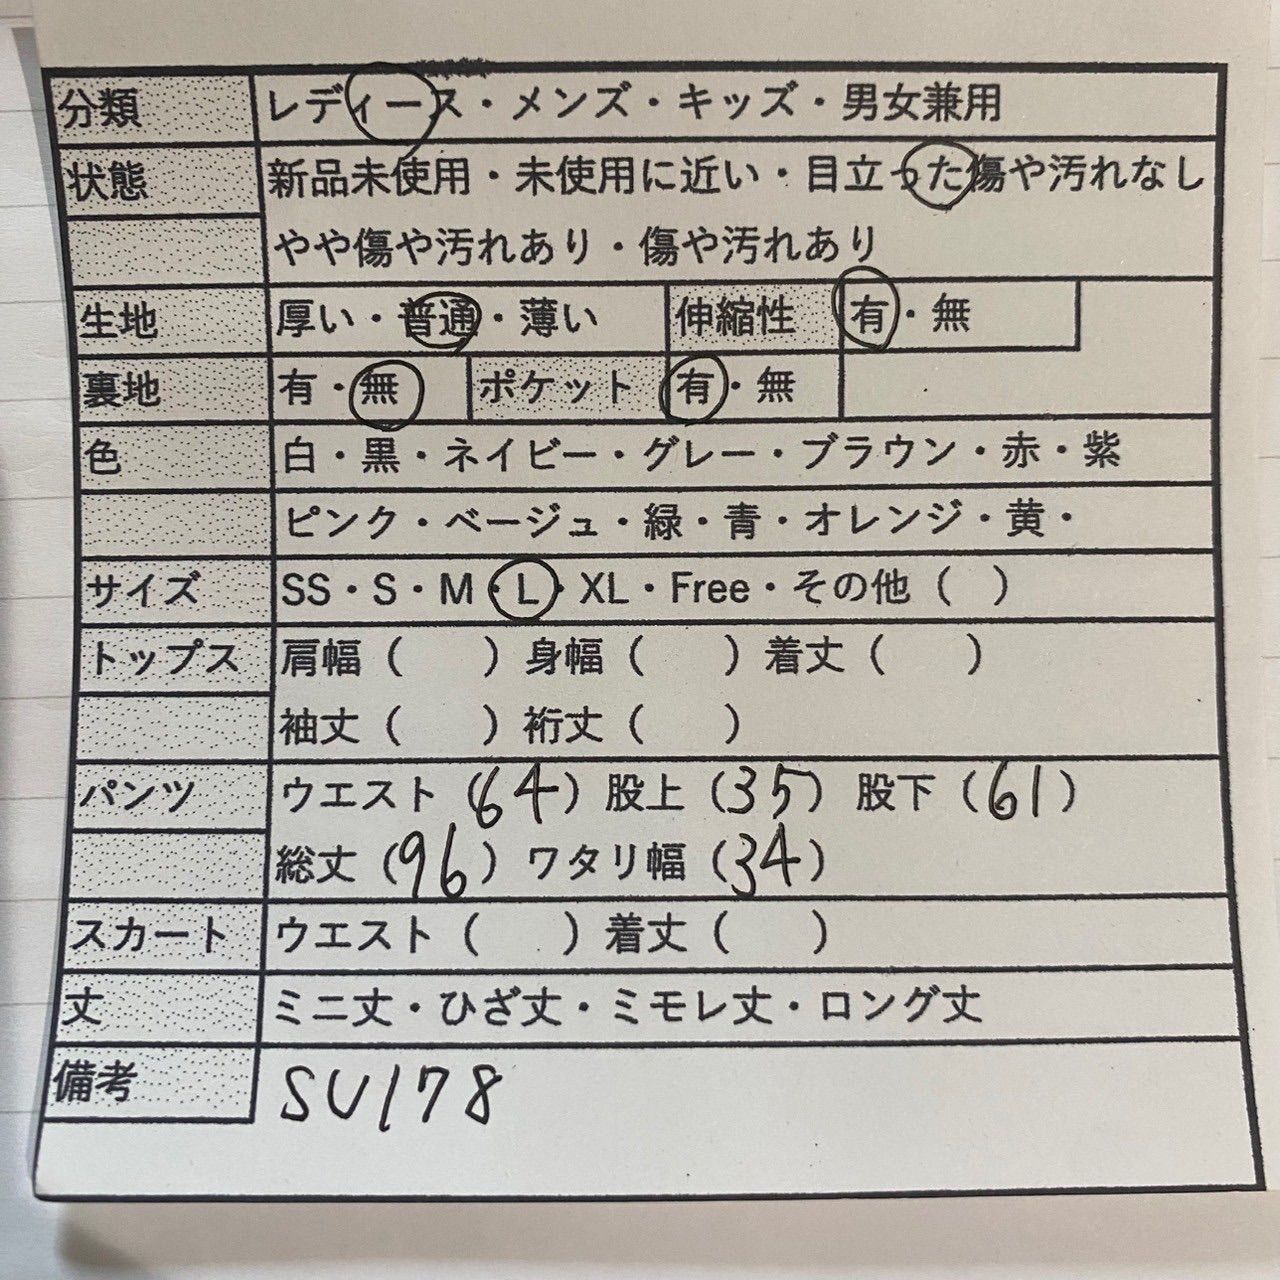 分類 レディース・メンズ・キッズ・男女兼用
状態 新品未使用・未使用に近い・目立った傷や汚れなし
やや傷や汚れあり・傷や汚れあり
生地 厚い・普通・薄い 伸縮性 有・無
裏地 有・無 ポケット 有・無
色 白・黒・ネイビー・グレー・ブラウン・赤・紫
ピンク・ベージュ・緑・青・オレンジ・黄・
サイズ SS・S・M・L・XL・Free・その他（ ）
トップス 肩幅（ ）身幅（ ）着丈（ ）
袖丈（ ）裄丈（ ）
パンツ ウエスト（64）股上（35）股下（61）
総丈（96）ワタリ幅（34）
スカート ウエスト（ ）着丈（ ）
丈 ミニ丈・ひざ丈・ミモレ丈・ロング丈
備考 SU178